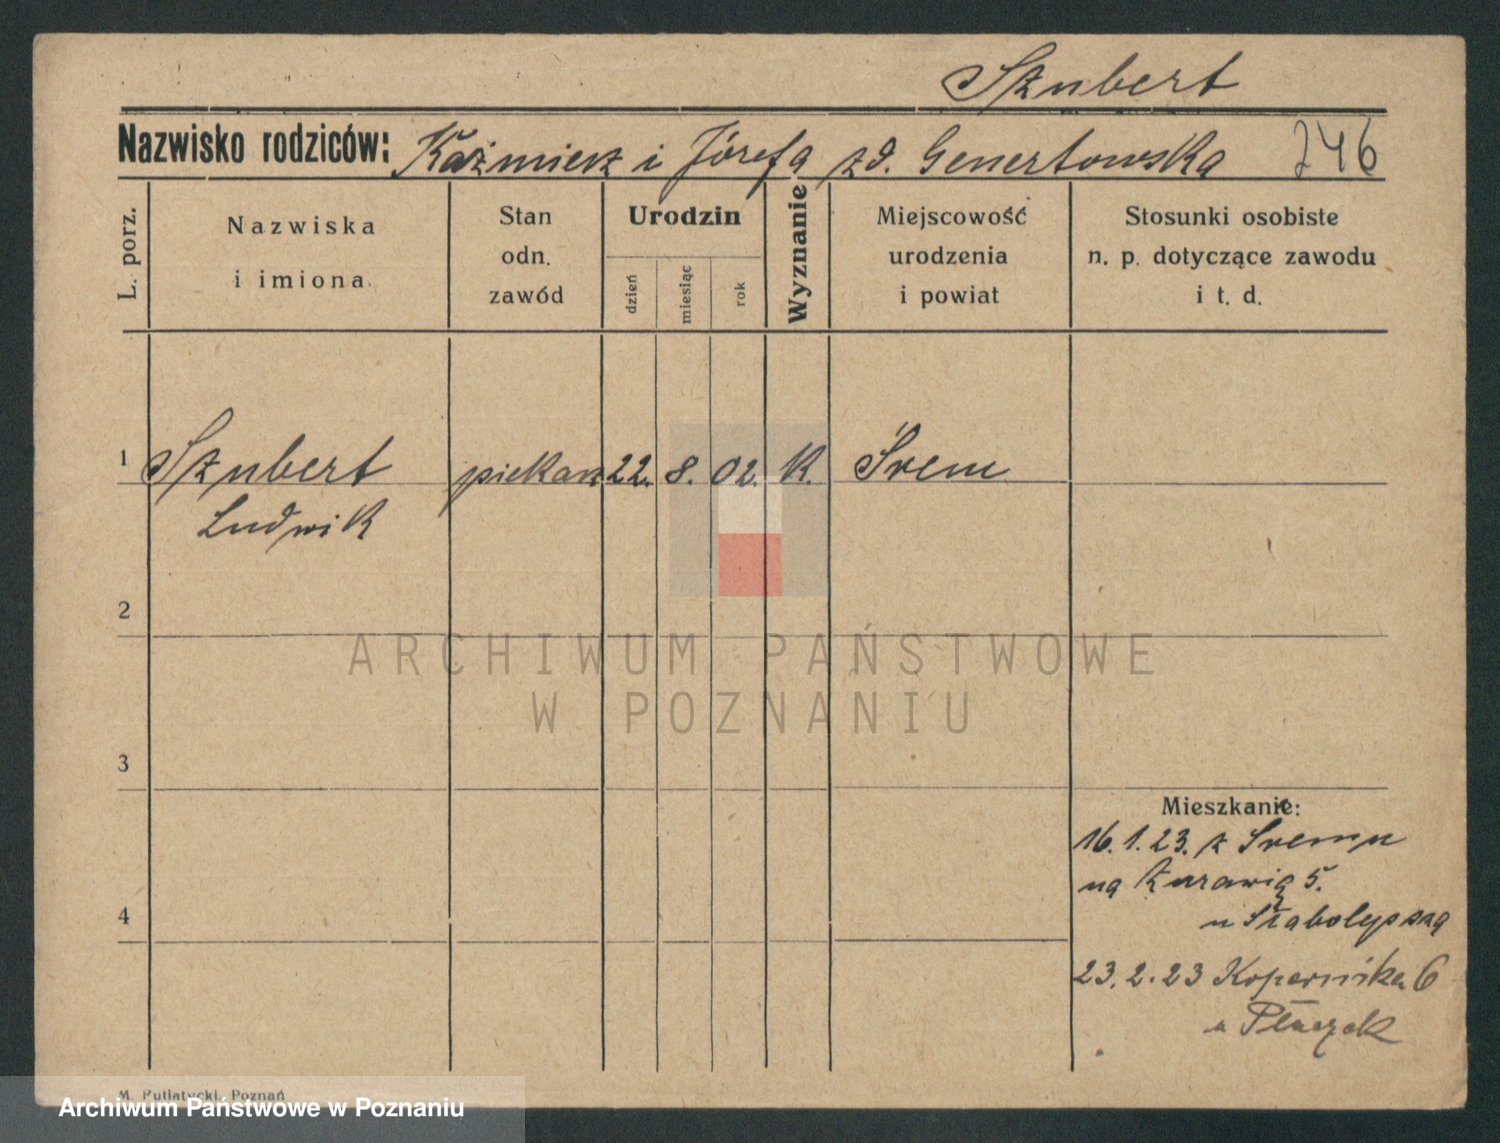 Szubert
Nazwisko rodziców: Kaźmierz i Józefa zd. Genertowska 246
L. porz.
Nazwiska
i imiona.
Stan
odn.
zawód
Urodzin
dzień
miesiąc
rok
Wyznanie
Miejscowość
urodzenia
i powiat
Stosunki osobiste
n. p. dotyczące zawodu
i t. d.
1 Szubert piekarz 22. 8. 02. K. Śrem
Ludwik
2
ARCHIWUM PAŃSTWOWE
W POZNANIU
3
Mieszkanie:
16.1.23. z Śremu
na Żurawią 5.
4
23.2.23 Kopernika 6
u
M. Putiatycki, Poznań
Archiwum Państwowe w Poznaniu